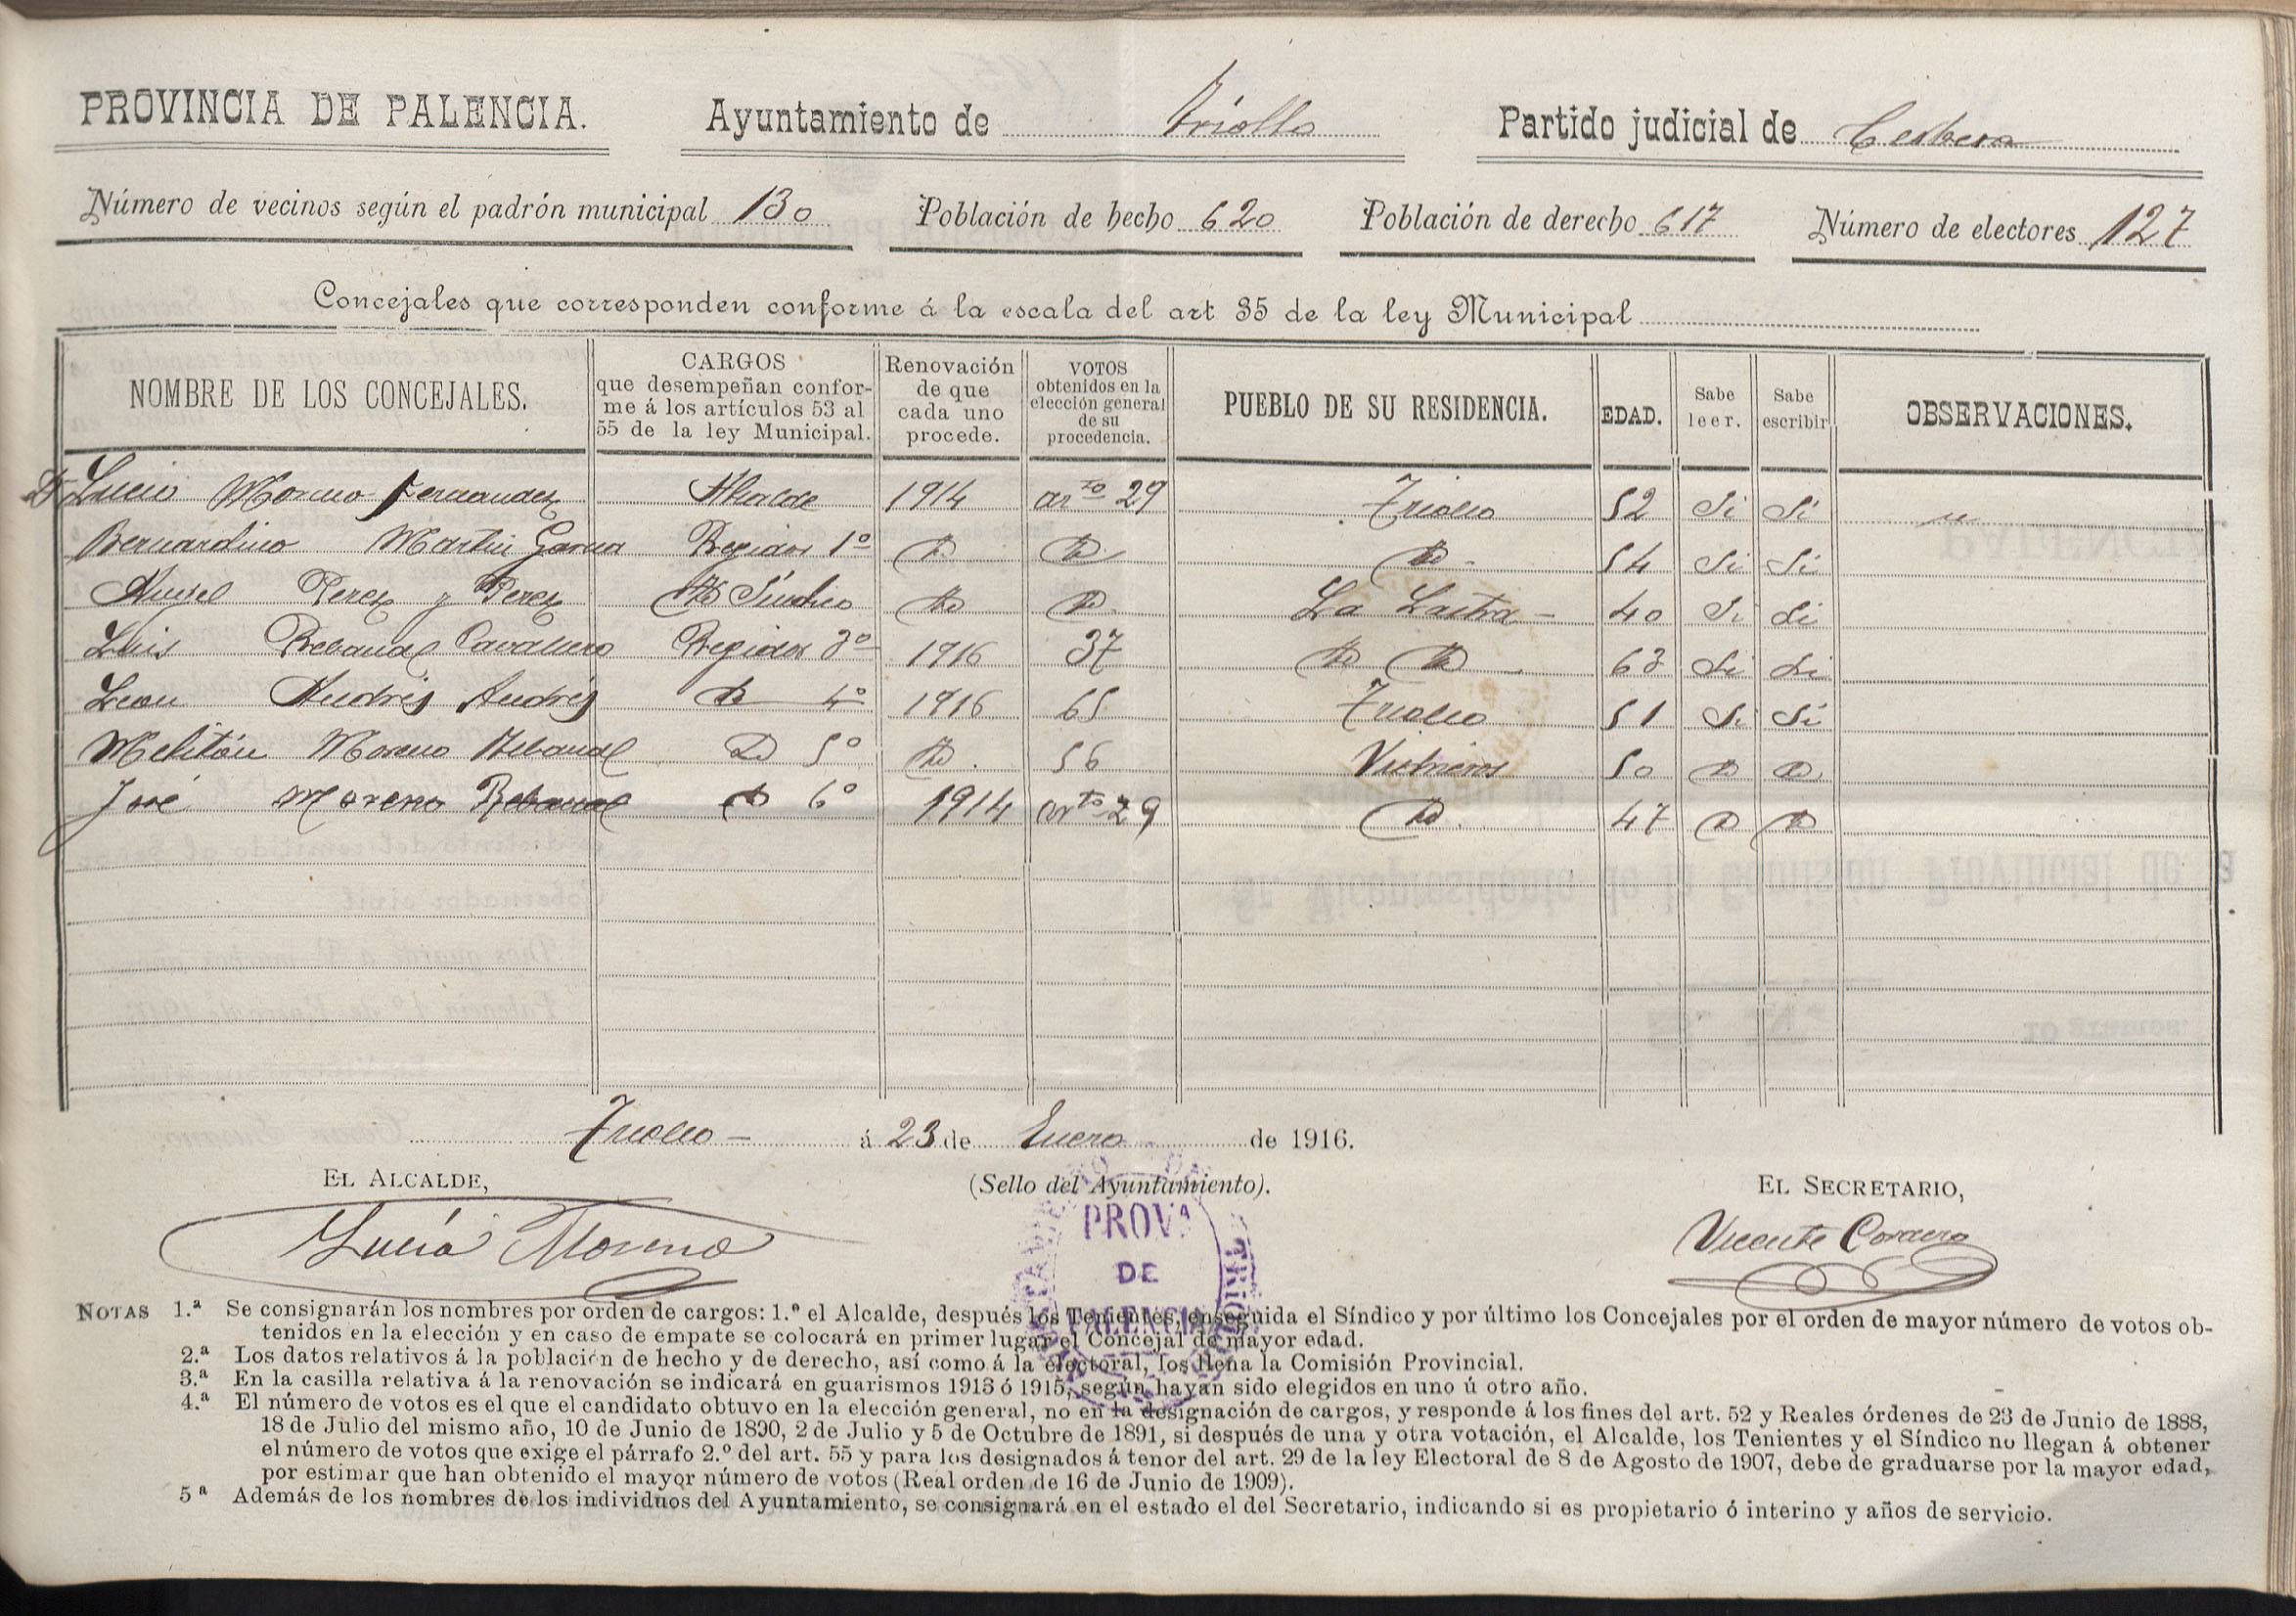 PROVINCIA DE PALENCIA. Ayuntamiento de Triollo Partido judicial de Cerbera
Número de vecinos según el padrón municipal 130 Población de hecho 620 Población de derecho 617 Número de electores 127
Concejales que corresponden conforme á la escala del art 35 de la ley Municipal
NOMBRE DE LOS CONCEJALES. CARGOS que desempeñan confor-me á los artículos 53 al 55 de la ley Municipal. Renovación de que cada uno procede. VOTOS obtenidos en la elección general de su procedencia. PUEBLO DE SU RESIDENCIA. EDAD. Sabe leer. Sabe escribir OBSERVACIONES.
D Lucio Moreno Fernandez Alcalde 1914 arto 29 Triollo 52 Si Si "
Bernardino Martin Garcia Regidor 1º Id Id Id 54 Si Si
Angel Perez y Perez Id Sindico Id Id La Lastra 40 Si Si
Luis Rebanal Cavallero Regidor 3º 1916 37 Id Id 63 Si Si
Leon Andrés Andrés Id 4º 1916 65 Triollo 51 Si Si
Melitón Moreno Rebanal Id 5º Id. 56 Vidrieros 50 Id Id
José Moreno Rebanal Id 6º 1914 arto 29 Id. 47 Id Id
Triollo á 23 de Enero de 1916.
EL ALCALDE, (Sello del Ayuntamiento). EL SECRETARIO,
Lucio Moreno PROVA DE PALENCIA Vicente Cordero
NOTAS 1.ª Se consignarán los nombres por orden de cargos: 1.º el Alcalde, después los Tenientes, enseguida el Síndico y por último los Concejales por el orden de mayor número de votos ob-
tenidos en la elección y en caso de empate se colocará en primer lugar el Concejal de mayor edad.
2.ª Los datos relativos á la población de hecho y de derecho, así como á la electoral, los llena la Comisión Provincial.
3.ª En la casilla relativa á la renovación se indicará en guarismos 1913 ó 1915, según hayan sido elegidos en uno ú otro año.
4.ª El número de votos es el que el candidato obtuvo en la elección general, no en la designación de cargos, y responde á los fines del art. 52 y Reales órdenes de 23 de Junio de 1888,
18 de Julio del mismo año, 10 de Junio de 1890, 2 de Julio y 5 de Octubre de 1891, si después de una y otra votación, el Alcalde, los Tenientes y el Síndico no llegan á obtener
el número de votos que exige el párrafo 2.º del art. 55 y para los designados á tenor del art. 29 de la ley Electoral de 8 de Agosto de 1907, debe de graduarse por la mayor edad,
por estimar que han obtenido el mayor número de votos (Real orden de 16 de Junio de 1909).
5ª Además de los nombres de los individuos del Ayuntamiento, se consignará en el estado el del Secretario, indicando si es propietario ó interino y años de servicio.